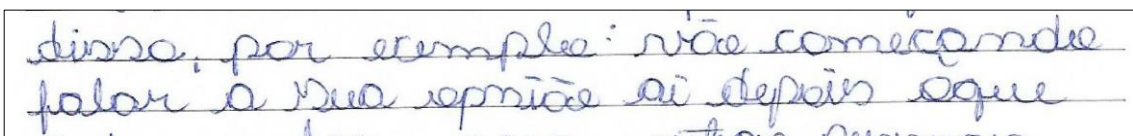 disso, por exemplo: vão começando
falar a sua opnião ai depois oque